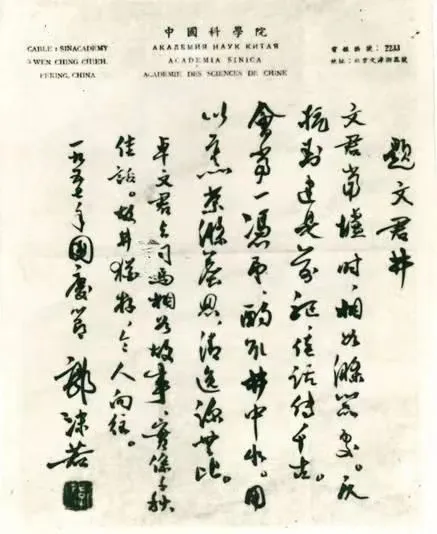 中國科學院
АКАДЕМИЯ НАУК КИТАЯ
ACADEMIA SINICA
ACADEMIE DES SCIENCES DE CHINE
CABLE: SINACADEMY
3 WEN CHING CHIEH.
PEKING, CHINA
電報掛號：2233
地址：北京文津街三號
題文君井
文君當壚時，相如滌器處。反
抗封建是前驅，佳話傳千古。
會當一憑弔，酌取井中水。用
以烹茶滌塵思，清逸涼無比。
卓文君与司馬相如故事，實係千秋
佳話。故井猶存，令人向往。
一九五七年國慶節 郭沫若